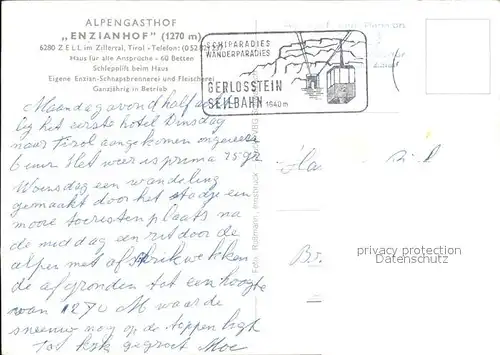 ALPENGASTHOF
„ENZIANHOF" (1270 m)
6280 ZELL im Zillertal, Tirol - Telefon: (0 52 82)
Haus für alle Ansprüche - 60 Betten
Schlepplift beim Haus
Eigene Enzian-Schnapsbrennerei und Fleischerei
Ganzjährig in Betrieb
SCHIPARADIES
WANDERPARADIES
GERLOSSTEIN
SEILBAHN 1640 m
Maandag avond half acht
bij het eerste hotel Dinsdag
naar Tirol aangekomen ongeveer
6 uur Het weer is prima 25 gr
Woensdag een wandeling
gemaakt door het stadje een
mooie toeristen plaats na
de middag een rit door de
alpen met afschrikwekken
de afgronden tot een hoogte
van 1270 M waar de
sneeuw nog op de toppen ligt
kijk gegroet Moe
Foto
Innsbruck
privacy protection
Datenschutz